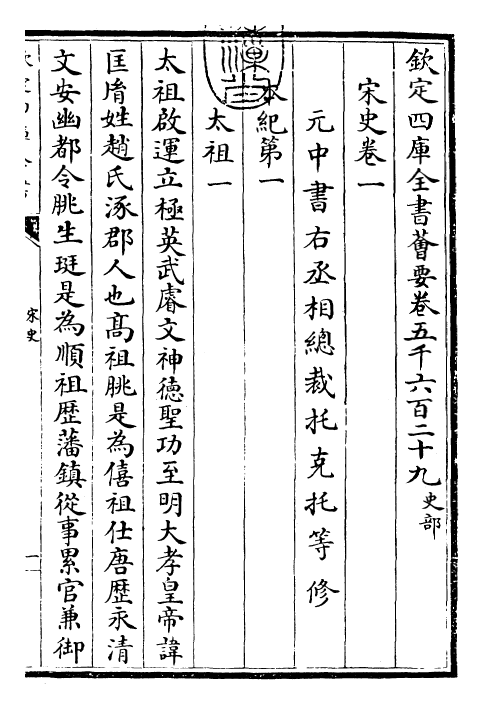 欽定四庫全書薈要卷五千六百二十九史部
宋史卷一
元中書右丞相總裁托克托等修
本紀第一
太祖一
太祖啟運立極英武睿文神德聖功至明大孝皇帝諱
匡𦙍姓趙氏涿郡人也髙祖朓是為僖祖仕唐歴永清
文安幽都令朓生珽是為順祖歴藩鎮從事累官兼御
宋史
一